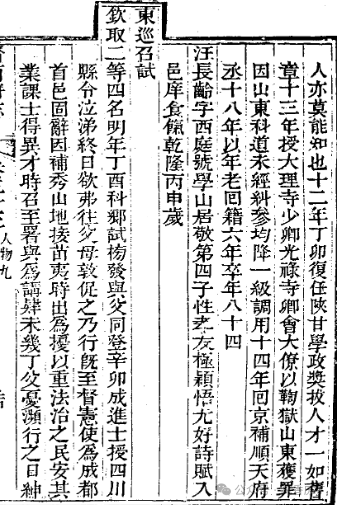 人亦莫能知也十二年丁卯復任陝甘學政獎拔人才一如舊
章十三年授大理寺少卿光祿寺卿會大僚以鞫獄山東獲罪
因山東科道未經糾參均降一級調用十四年回京補順天府
丞十八年以年老回籍六年卒年八十四
汪長齡字西庭號學山居敬第四子性孝友極穎悟尤好詩賦入
邑庠食餼乾隆丙申歲
東巡召試
欽取二等四名明年丁酉科鄉試榜發與父同登辛卯成進士授四川
縣令泣涕終日欲弗往父母敦促之乃行既至督憲使為成都
首邑固辭因補秀山地接苗夷時出為擾以重法治之民安其
業課士得異才時召至署與為講肄未幾丁父憂瀕行之日紳
人物九
公众号